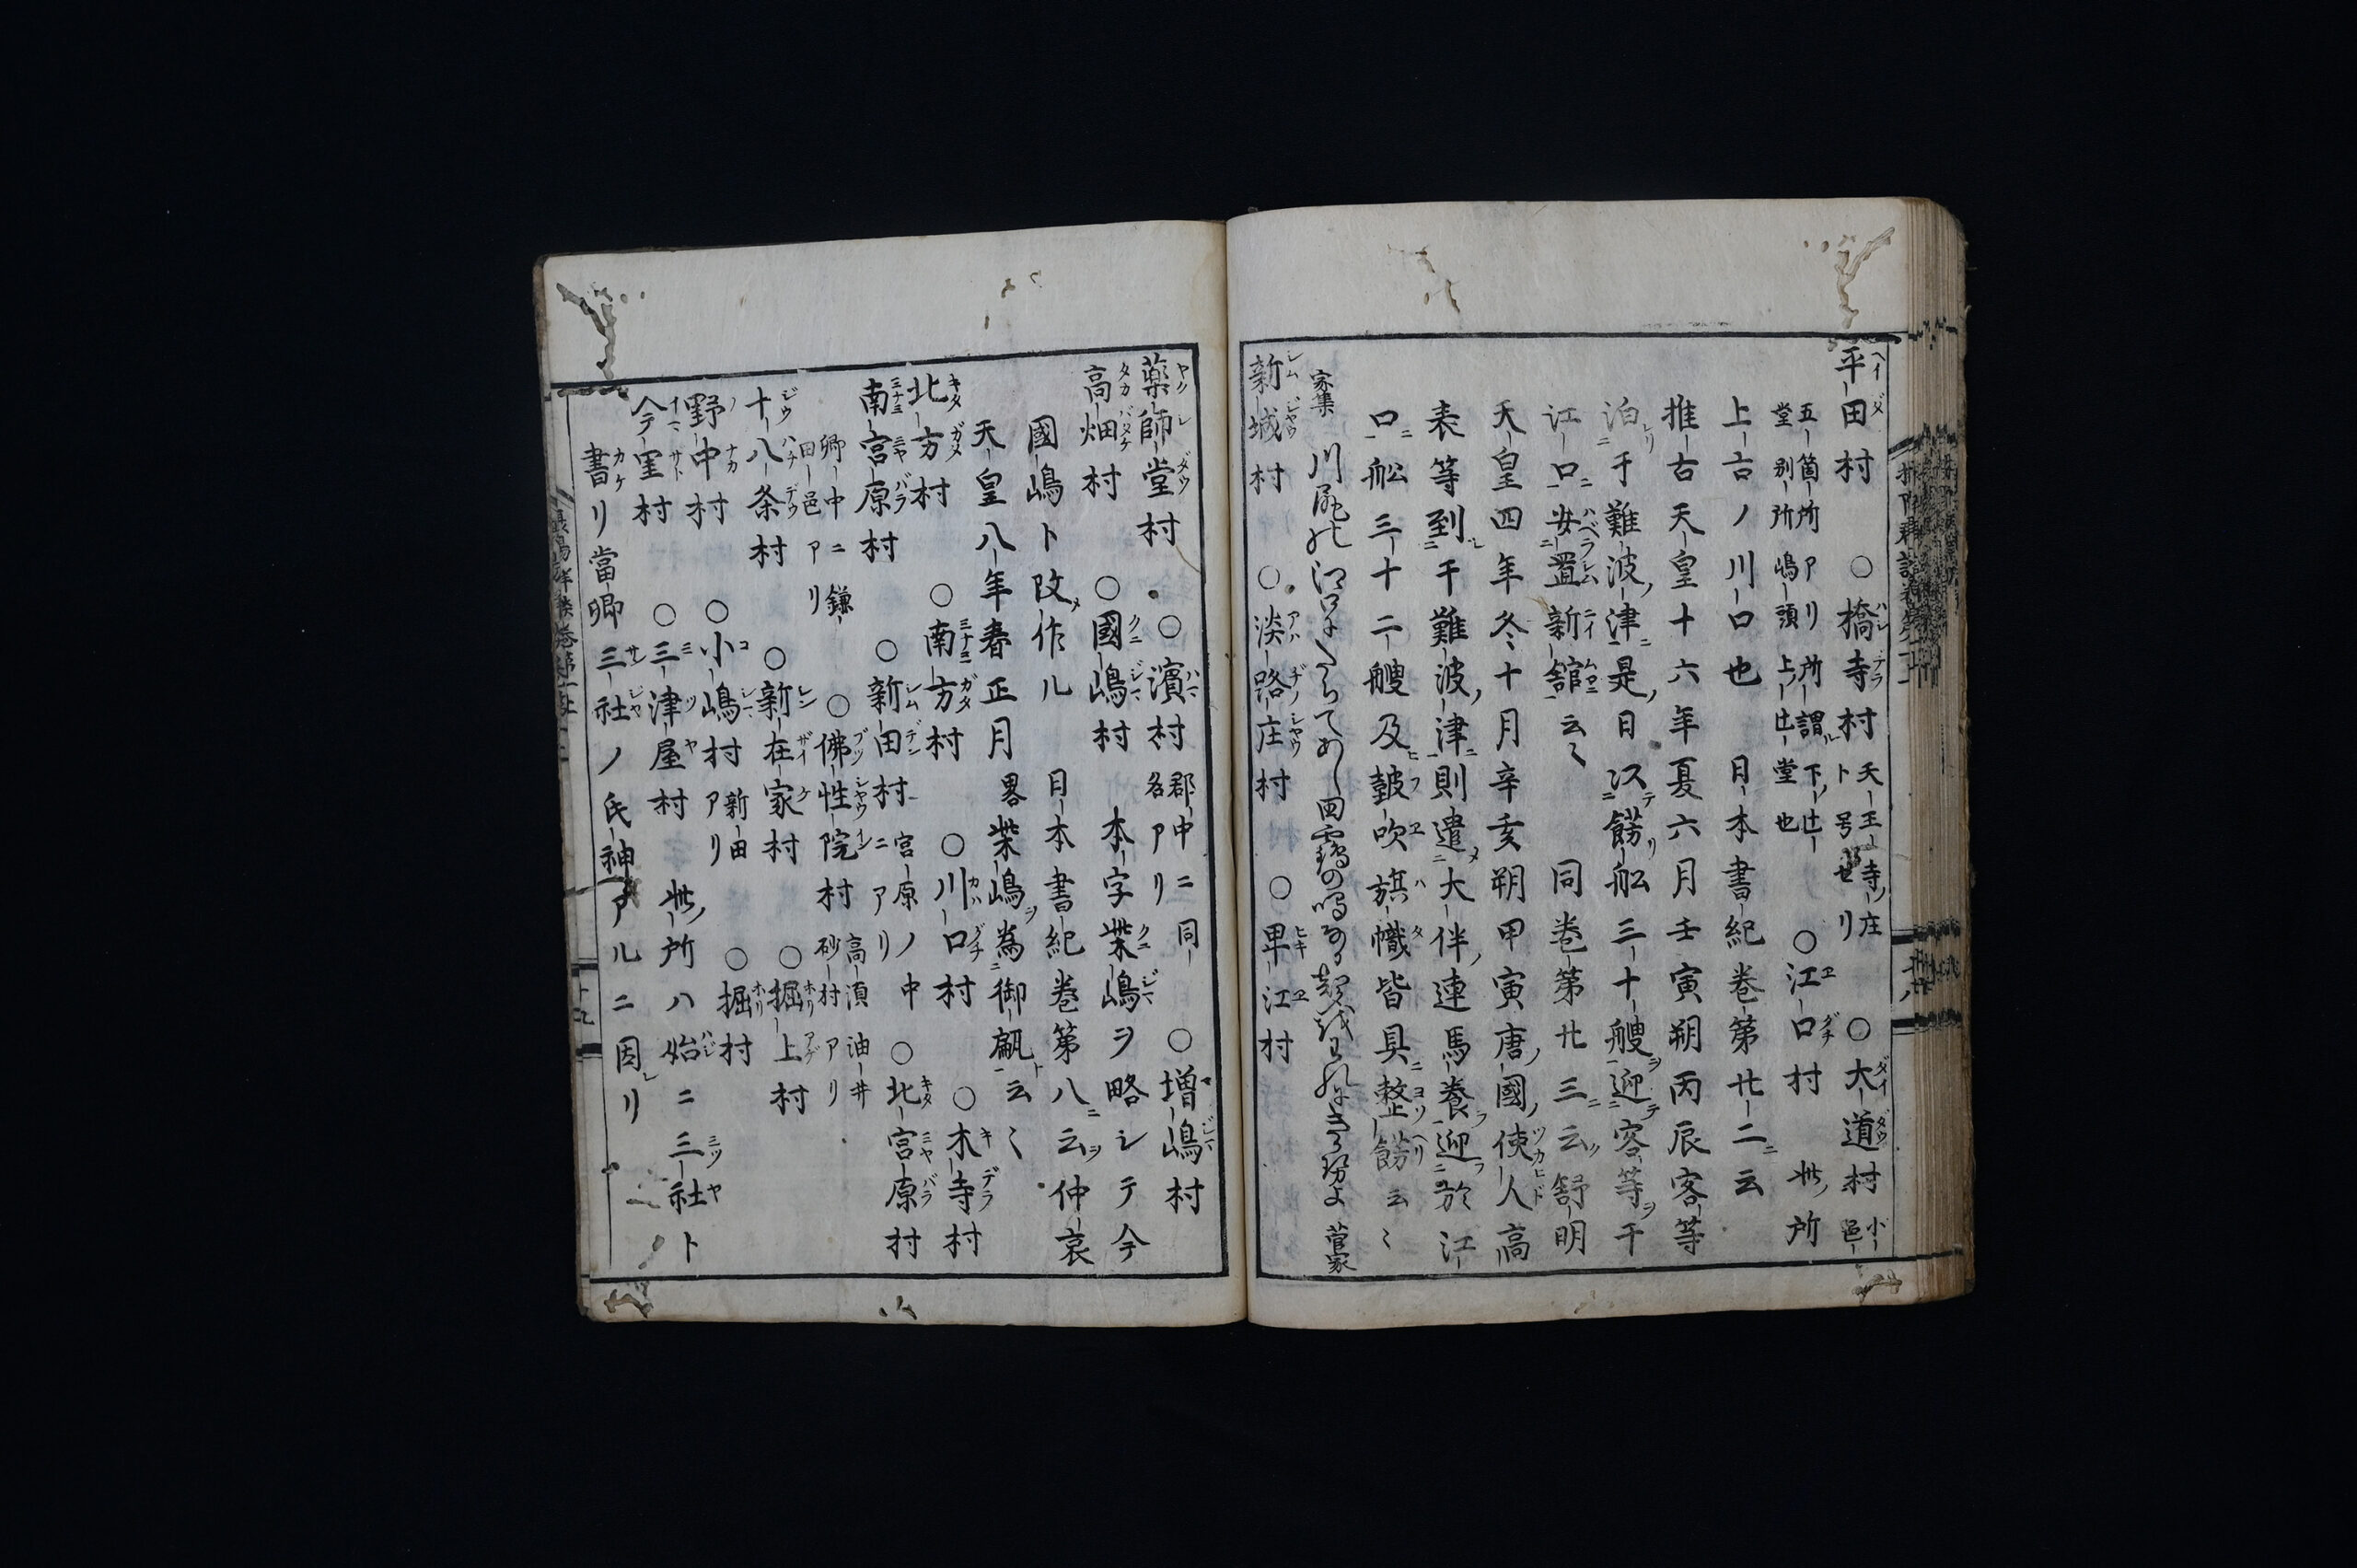 平田村　○橋寺村　天王寺ノ庄ト号セリ　○大道村　小邑
五箇所アリ所謂下ノ辻
堂別所嶋頭上ノ辻堂也　○江口村　此ノ所
上古ノ川口也　日本書紀巻第廿二ニ云
推古天皇十六年夏六月壬寅朔丙辰客等
泊于難波ノ津ニ是ノ日以テ餝船三十艘ヲ迎テ客等ヲ于
江口ニ安置新舘云〻　同巻第廿三ニ云ク舒明
天皇四年冬十月辛亥朔甲寅唐ノ國ノ使人高
表等到于難波ノ津ニ則遣大伴ノ連馬養ヲ迎於江
口ニ舩三十二艘及鼓吹旗幟皆具整餝云〻
家集　菅家
新城村　○淡路庄村　○卑江村
薬師堂村　○濱村　郡中ニ同名アリ　○増嶋村
高畑村　○國嶋村　本字柴嶋ヲ略シテ今
國嶋ト改メ作ル　日本書紀巻第八ニ云仲哀
天皇八年春正月畧柴嶋ヲ為御甂ト云〻
北方村　○南方村　○川口村　○木寺村
南宮原村　○新田村　宮原ノ中ニアリ　○北宮原村
郷中ニ鎌田邑アリ　○佛性院村　高須油井砂村アリ
十八条村　○新在家村　○掘上村
野中村　○小嶋村　新田アリ　○掘村
今里村　○三津屋村　此ノ所ハ始ニ三社ト
書リ當郷三社ノ氏神アルニ因レリ